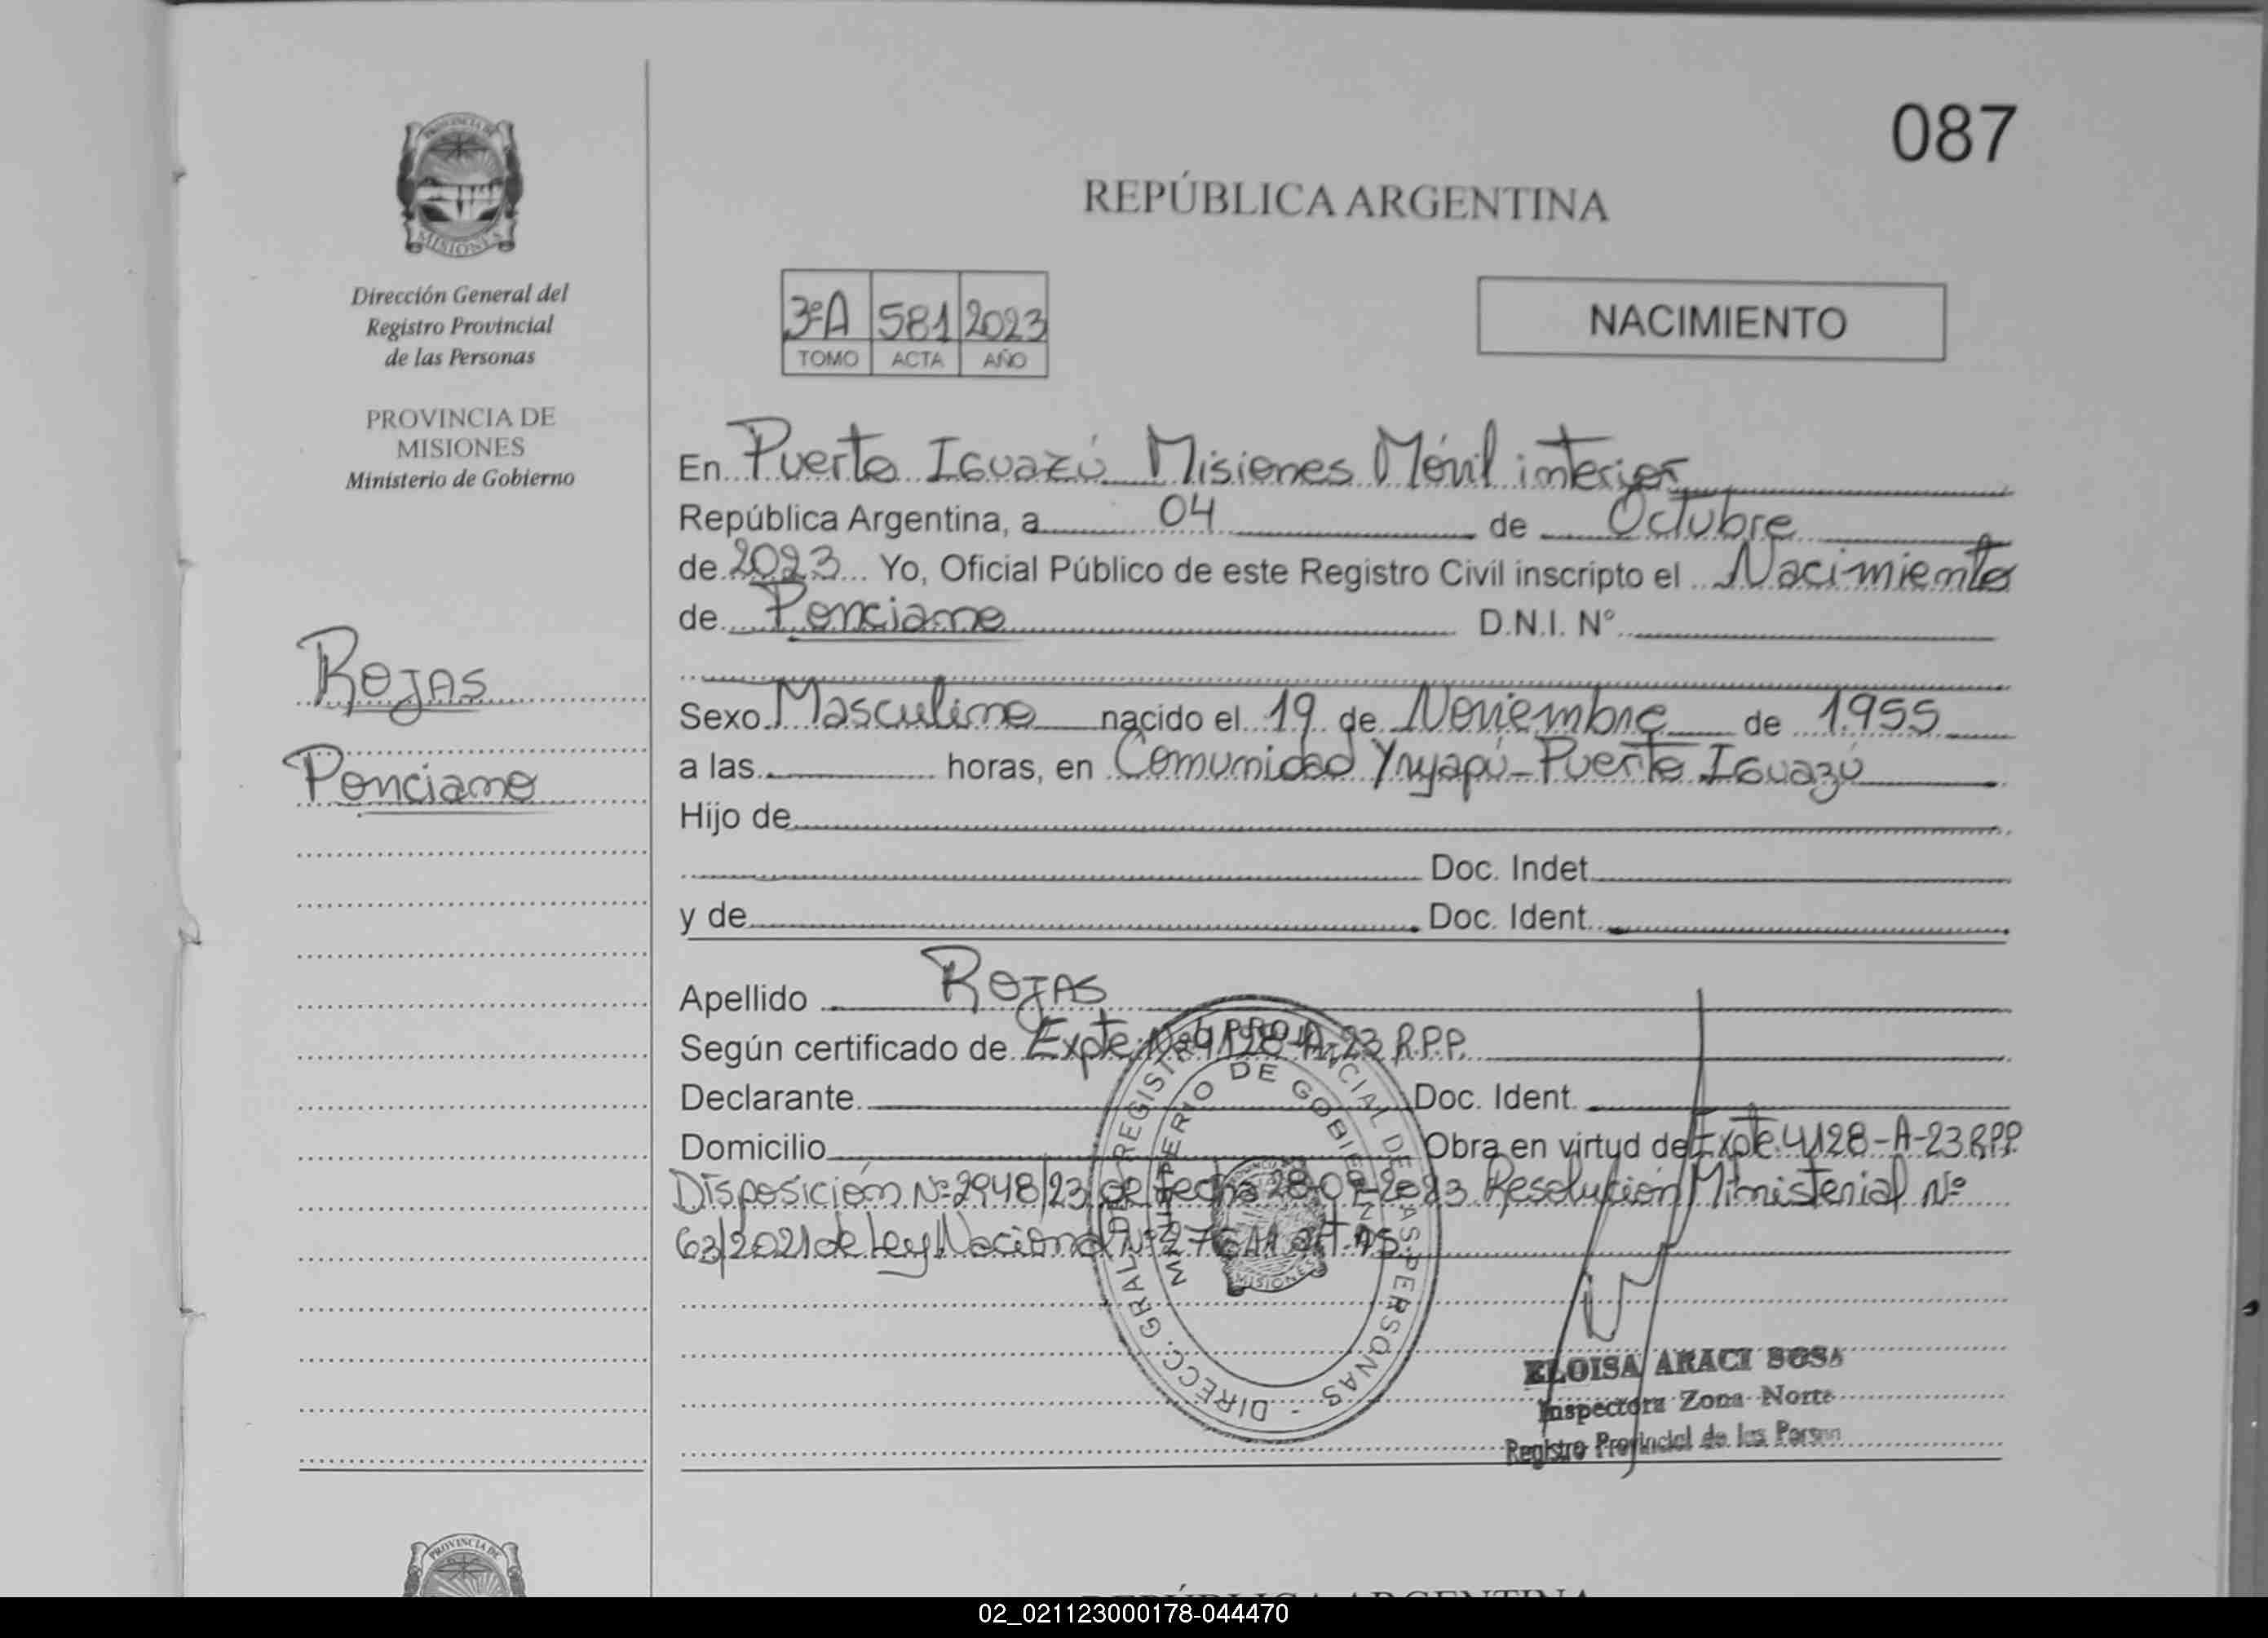 087
PROVINCIA DE
MISIONES
Dirección General del
Registro Provincial
de las Personas
PROVINCIA DE
MISIONES
Ministerio de Gobierno
ROJAS
Ponciano
REPÚBLICA ARGENTINA
3ºA 581 2023
TOMO ACTA AÑO
NACIMIENTO
En Puerto Iguazú Misiones Móvil interior
República Argentina, a 04 de Octubre
de 2023 Yo, Oficial Público de este Registro Civil inscripto el Nacimiento
de Ponciano D.N.I. Nº
Sexo Masculino nacido el 19 de Noviembre de 1955
a las horas, en Comunidad Yryapú - Puerto Iguazú
Hijo de
Doc. Indet
y de Doc. Ident.
Apellido ROJAS
Según certificado de Expte. Nº 4128-A-23 R.P.P.
Declarante Doc. Ident.
Domicilio Obra en virtud de Expte. 4128-A-23 RPP.
Disposición Nº 2948/23 de fecha 28-09-2023 Resolución Ministerial Nº
63/2021 de Ley Nacional Nº
DIRECC. GRAL. DEL REGISTRO PROVINCIAL DE LAS PERSONAS
MINISTERIO DE GOBIERNO
MISIONES
ELOISA ARACI SOSA
Inspectora Zona Norte
Registro Provincial de las Person
PROVINCIA DE
REPÚBLICA ARGENTINA
02_021123000178-044470